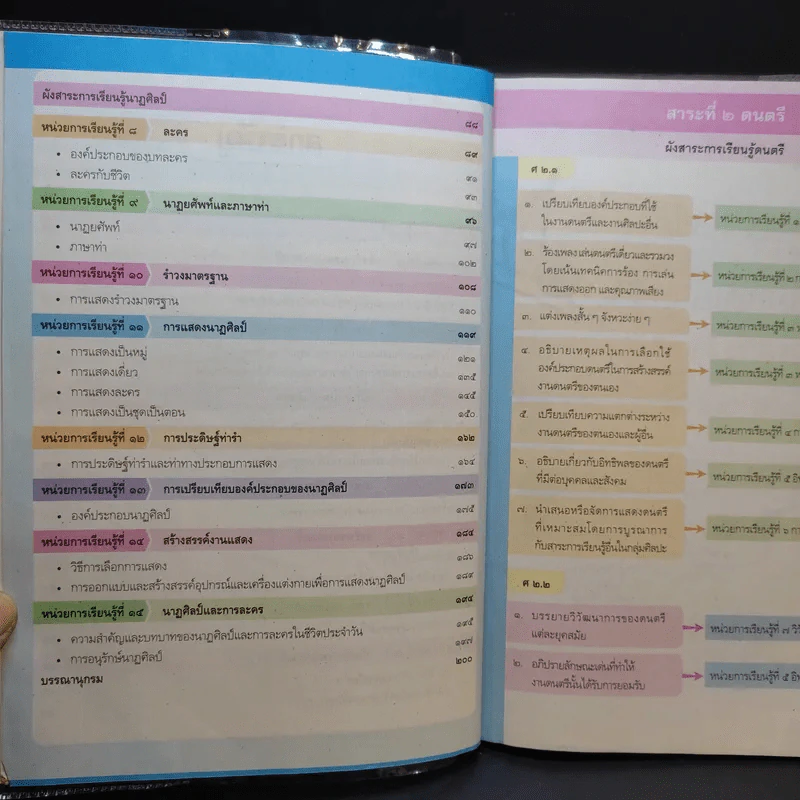 ผังสาระการเรียนรู้นาฏศิลป์ ๘๘
หน่วยการเรียนรู้ที่ ๘ ละคร ๘๙
• องค์ประกอบของบทละคร ๙๑
• ละครกับชีวิต ๙๓
หน่วยการเรียนรู้ที่ ๙ นาฏยศัพท์และภาษาท่า ๙๖
• นาฏยศัพท์ ๙๗
• ภาษาท่า ๑๐๒
หน่วยการเรียนรู้ที่ ๑๐ รำวงมาตรฐาน ๑๐๘
• การแสดงรำวงมาตรฐาน ๑๑๐
หน่วยการเรียนรู้ที่ ๑๑ การแสดงนาฏศิลป์ ๑๑๙
• การแสดงเป็นหมู่ ๑๒๑
• การแสดงเดี่ยว ๑๓๕
• การแสดงละคร ๑๔๕
• การแสดงเป็นชุดเป็นตอน ๑๕๐
หน่วยการเรียนรู้ที่ ๑๒ การประดิษฐ์ท่ารำ ๑๖๒
• การประดิษฐ์ท่ารำและท่าทางประกอบการแสดง ๑๖๔
หน่วยการเรียนรู้ที่ ๑๓ การเปรียบเทียบองค์ประกอบของนาฏศิลป์ ๑๗๓
• องค์ประกอบนาฏศิลป์ ๑๗๕
หน่วยการเรียนรู้ที่ ๑๔ สร้างสรรค์งานแสดง ๑๘๔
• วิธีการเลือกการแสดง ๑๘๖
• การออกแบบและสร้างสรรค์อุปกรณ์และเครื่องแต่งกายเพื่อการแสดงนาฏศิลป์ ๑๘๙
หน่วยการเรียนรู้ที่ ๑๕ นาฏศิลป์และการละคร ๑๙๔
• ความสำคัญและบทบาทของนาฏศิลป์และการละครในชีวิตประจำวัน ๑๙๕
• การอนุรักษ์นาฏศิลป์ ๑๙๗
บรรณานุกรม ๒๐๐
สาระที่ ๒ ดนตรี
ผังสาระการเรียนรู้ดนตรี
ศ ๒.๑
๑. เปรียบเทียบองค์ประกอบที่ใช้
ในงานดนตรีและงานศิลปะอื่น
หน่วยการเรียนรู้ที่ ๑
๒. ร้องเพลง เล่นดนตรีเดี่ยวและรวมวง
โดยเน้นเทคนิคการร้อง การเล่น
การแสดงออก และคุณภาพเสียง
หน่วยการเรียนรู้ที่ ๒
๓. แต่งเพลงสั้น ๆ จังหวะง่าย ๆ
หน่วยการเรียนรู้ที่ ๓
๔. อธิบายเหตุผลในการเลือกใช้
องค์ประกอบดนตรีในการสร้างสรรค์
งานดนตรีของตนเอง
หน่วยการเรียนรู้ที่ ๓
๕. เปรียบเทียบความแตกต่างระหว่าง
งานดนตรีของตนเองและผู้อื่น
หน่วยการเรียนรู้ที่ ๔
๖. อธิบายเกี่ยวกับอิทธิพลของดนตรี
ที่มีต่อบุคคลและสังคม
หน่วยการเรียนรู้ที่ ๕
๗. นำเสนอหรือจัดการแสดงดนตรี
ที่เหมาะสมโดยการบูรณาการ
กับสาระการเรียนรู้อื่นในกลุ่มศิลปะ
หน่วยการเรียนรู้ที่ ๖
ศ ๒.๒
๑. บรรยายวิวัฒนาการของดนตรี
แต่ละยุคสมัย
หน่วยการเรียนรู้ที่ ๗
๒. อภิปรายลักษณะเด่นที่ทำให้
งานดนตรีนั้นได้รับการยอมรับ
หน่วยการเรียนรู้ที่ ๕